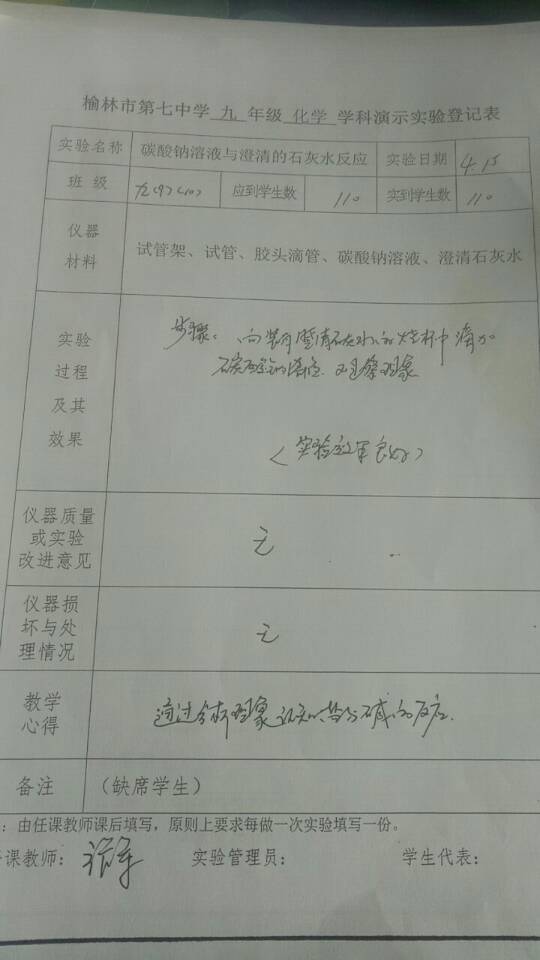 榆林市第七中学 九 年级 化学 学科演示实验登记表
实验名称 碳酸钠溶液与澄清的石灰水反应 实验日期 4.15
班 级 九(9)(10) 应到学生数 110 实到学生数 110
仪器
材料
试管架、试管、胶头滴管、碳酸钠溶液、澄清石灰水
实验
过程
及其
效果
步骤: 向装有澄清石灰水的烧杯中滴加
碳酸钠溶液 观察现象
(实验效果良好)
仪器质量
或实验
改进意见
无
仪器损
坏与处
理情况
无
教学
心得
通过分析现象认知盐与碱的反应.
备注 (缺席学生)
: 由任课教师课后填写,原则上要求每做一次实验填写一份。
课教师: 实验管理员: 学生代表: